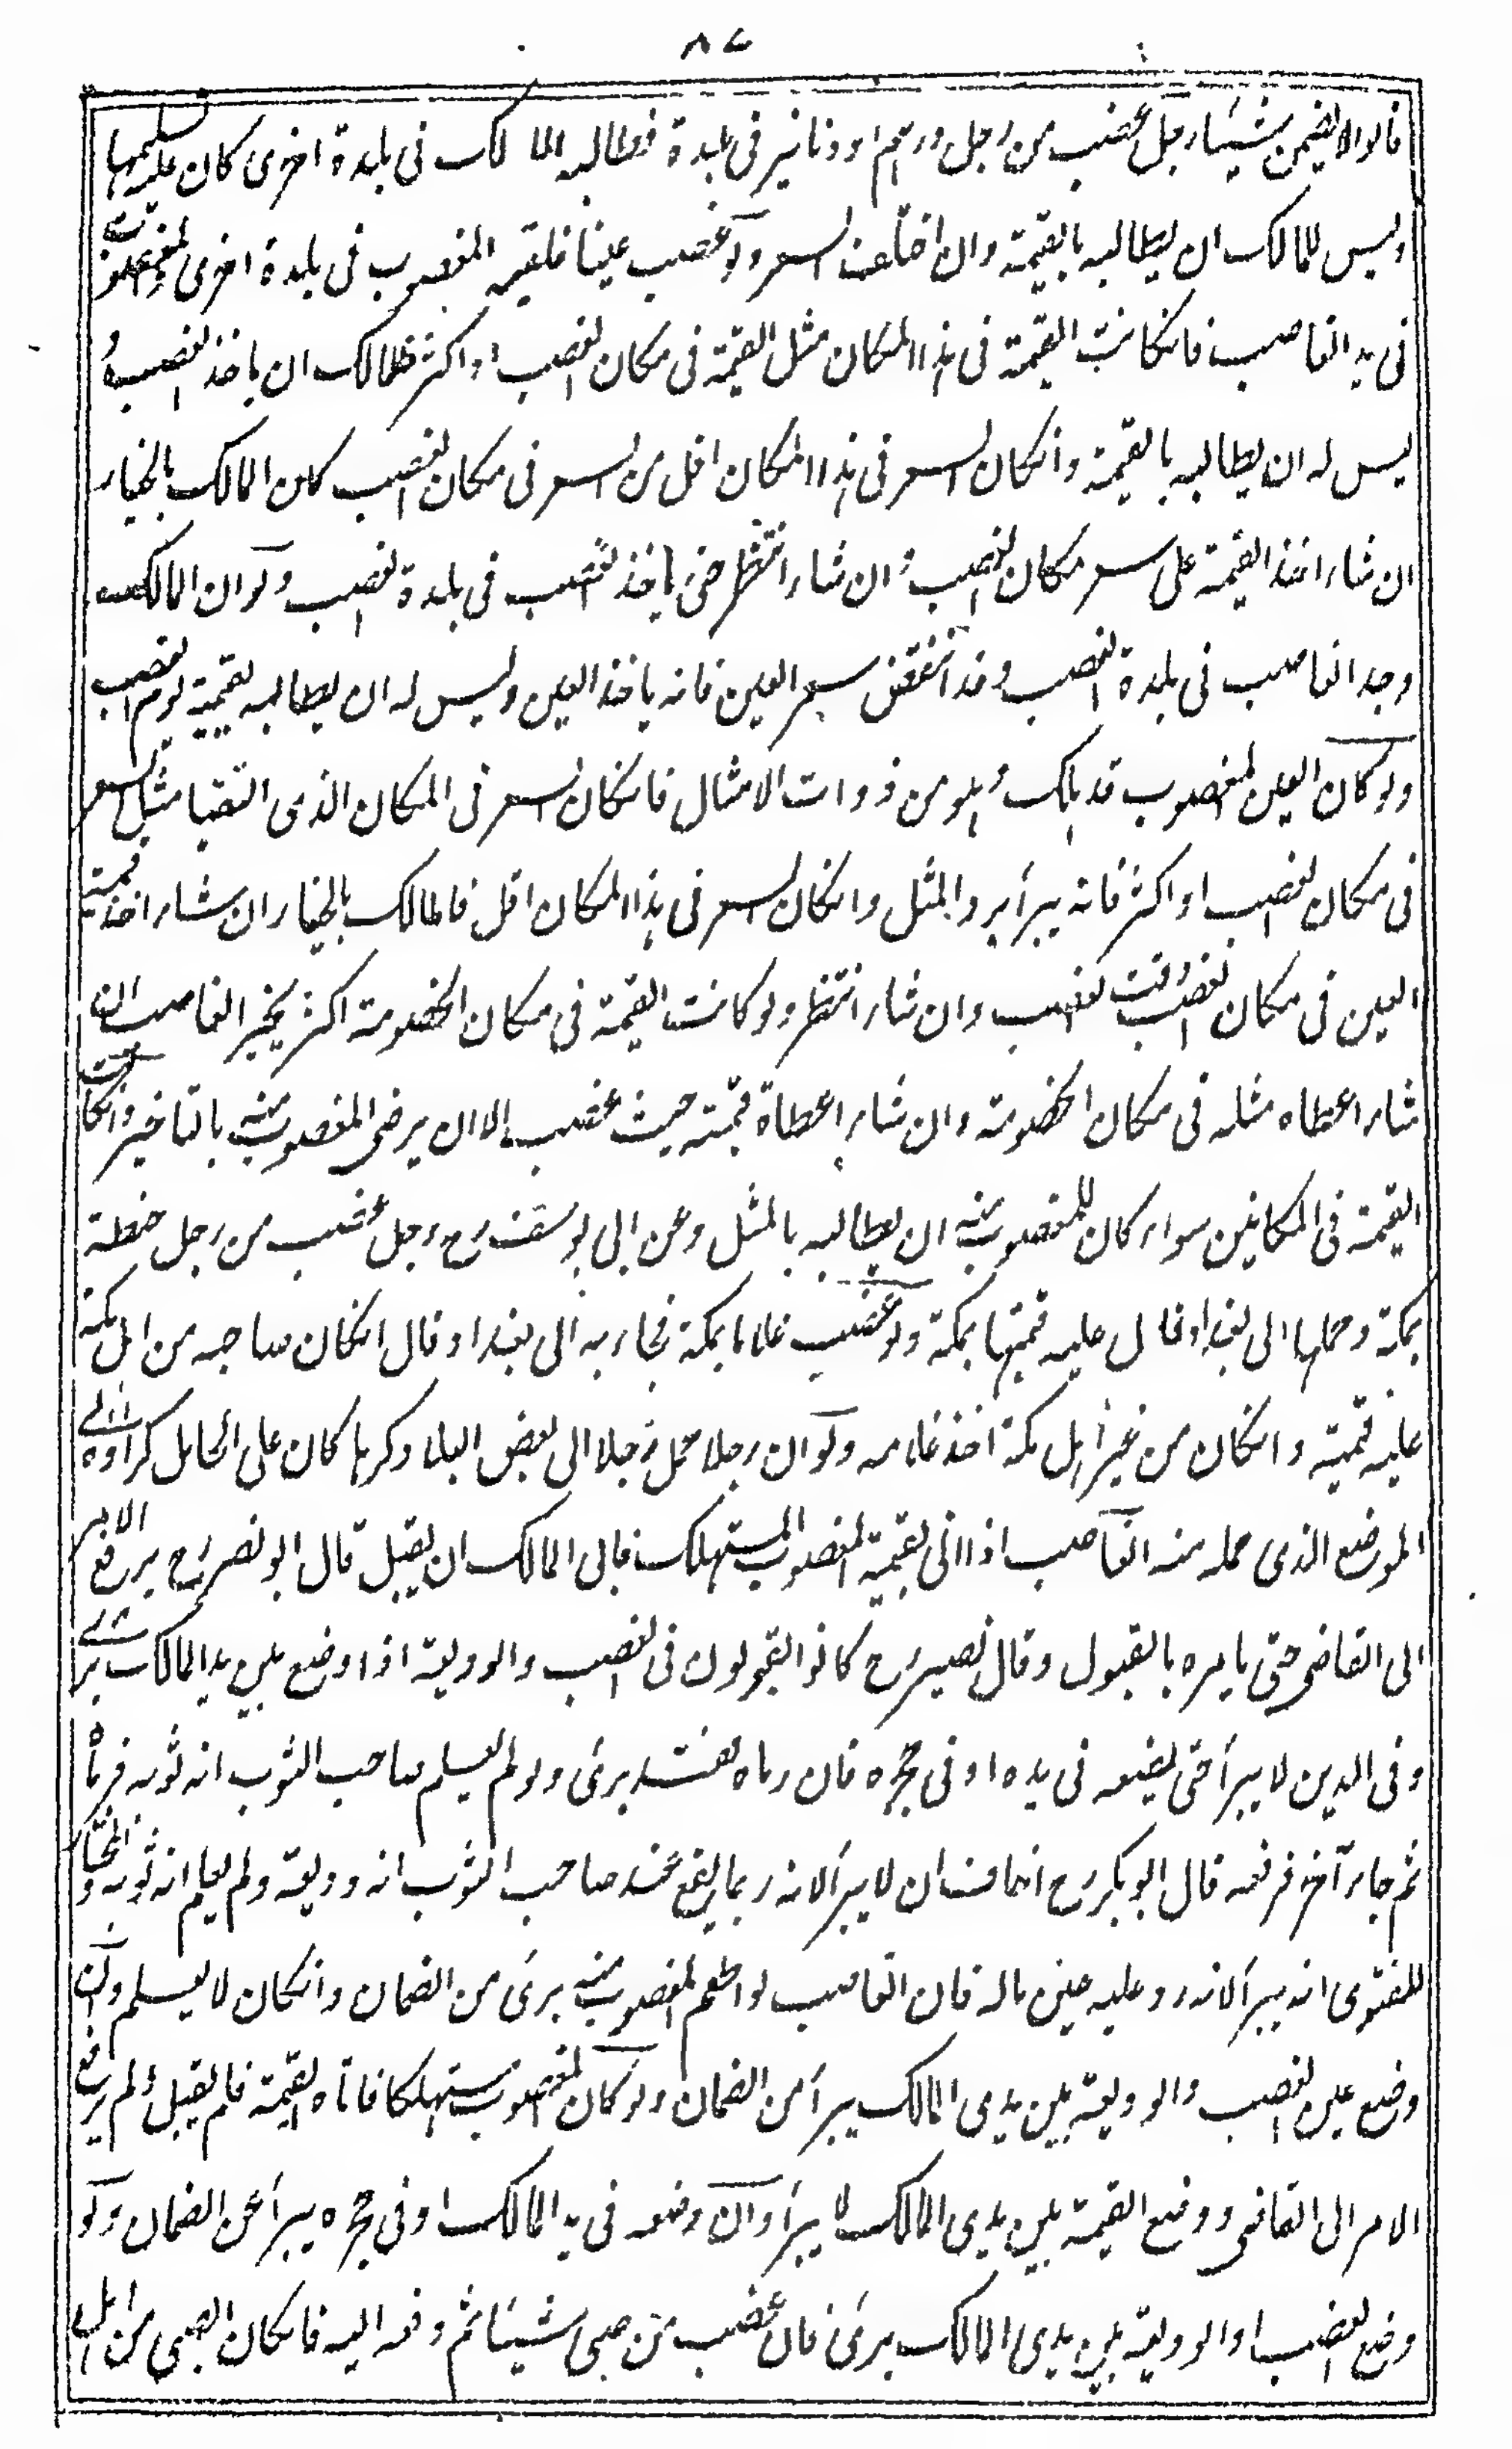 ٨٧
قالوا لا يضمن شيئا رجل غصب من رجل دراهم او دنانير فى بلدة فطالبه المالك فى بلدة اخرى كان عليه تسليمها
وليس للمالك ان يطالبه بالقيمة وان اختلف السعر ولو غصب عينا فلقيه المغصوب منه فى بلدة اخرى والمغصوب
فى يد الغاصب فانكانت القيمة فى هذا المكان مثل القيمة فى مكان الغصب او اكثر فللمالك ان ياخذ الغصب و
ليس له ان يطالبه بالقيمة وانكان السعر فى هذا المكان اقل من السعر فى مكان الغصب كان المالك بالخيار
ان شاء اخذ القيمة على سعر مكان الغصب وان شاء انتظر حتى ياخذ الغصب فى بلدة الغصب ولو ان المالك
وجد الغاصب فى بلدة الغصب وقد انتقض سعر العين فانه ياخذ العين وليس له ان يطالبه بقيمته يوم الغصب
ولو كان العين المغصوب قد هلك وهو من ذوات الامثال فانكان السعر فى المكان الذى التقيا مثل السعر
فى مكان الغصب او اكثر فانه يبرأ برد المثل وانكان السعر فى هذا المكان اقل فالمالك بالخيار ان شاء اخذ قيمة
العين فى مكان الغصب وقت الغصب وان شاء انتظر ولو كانت القيمة فى مكان الخصومة اكثر يخير الغاصب ان
شاء اعطاه مثله فى مكان الخصومة وان شاء اعطاه قيمته حيث غصب الا ان يرضى المغصوب منه بالتاخير وانكانت
القيمة فى المكانين سواء كان للمغصوب منه ان يطالبه بالمثل وعن ابى يوسف رح رجل غصب من رجل حنطة
بمكة وحملها الى بغداد قال عليه قيمتها بمكة ولو غصب غلاما بمكة فجاء به الى بغداد قال انكان صاحبه من اهل مكة
عليه قيمته وانكان من غير اهل مكة اخذ غلامه ولو ان رجلا حمل رجلا الى بعض البلاد كرها كان على الحامل كراؤه الى
الموضع الذى حمله منه الغاصب اذا اتى بقيمة المغصوب المستهلك فابى المالك ان يقبل قال ابو نصر رح يرفع الامر
الى القاضى حتى يامره بالقبول وقال نصير رح كانوا يقولون فى الغصب والوديعة اذا وضع بين يدى المالك برئ
وفى الدين لا يبرأ حتى يضعه فى يده او فى حجره فان رماه فقد برئ ولو لم يعلم صاحب الثوب انه ثوبه فرماه
ثم جاء آخر فرفعه قال ابو بكر رح اخاف ان لا يبرأ لانه ربما يقع عند صاحب الثوب انه وديعة ولم يعلم انه ثوبه والمختار
للفتوى انه يبرأ لانه رد عليه عين ماله فان الغاصب لو اطعم المغصوب منه برئ من الضمان وانكان لا يعلم وان
وضع عين الغصب والوديعة بين يدى المالك يبرأ من الضمان ولو كان المغصوب مستهلكا فاتاه القيمة فلم يقبل ولم يرفع
الامر الى القاضى ووضع القيمة بين يدى المالك لا يبرأ وان وضعه فى يد المالك او فى حجره يبرأ عن الضمان ولو
وضع الغصب او الوديعة بين يدى المالك برئ فان غصب من صبى شيئا ثم دفعه اليه فانكان الصبى من اهل